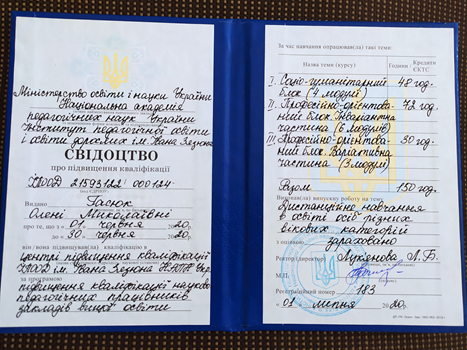 Міністерство освіти і науки України
Національна академія
педагогічних наук України
Інститут педагогічної освіти
і освіти дорослих ім. Івана Зязюна
СВІДОЦТВО
про підвищення кваліфікації
21593122/000124
Видано Гасюк
Олені Миколаївні
про те, що з 01 червня 2020р.
до 30 червня 2020р.
він/вона підвищував(ла) кваліфікацію в
центрі підвищення кваліфікації
ІПООД ім. Івана Зязюна НАПН Укр.
підвищення кваліфікації науково-
педагогічних працівників
закладів вищої освіти
За час навчання опрацював(ла) такі теми:
Назва теми (курсу) Години Кредити ЄКТС
I. Соціо-гуманітарний 48 год.
блок (4 модулі)
II. Професійно-орієнтова- 72 год.
ний блок. Інваріантна
частина (6 модулів)
III. Професійно-орієнтова- 30 год.
ний блок. Варіативна
частина (3 модулі)
Разом 150 год.
Виконав(ла) випускну роботу на тему
Дистанційне навчання
в освіті осіб різних
вікових категорій
з оцінкою зараховано
Ректор (директор) Лук'янова Л.Б.
М.П.
Реєстраційний номер 183
« 01 » липня 2020р.